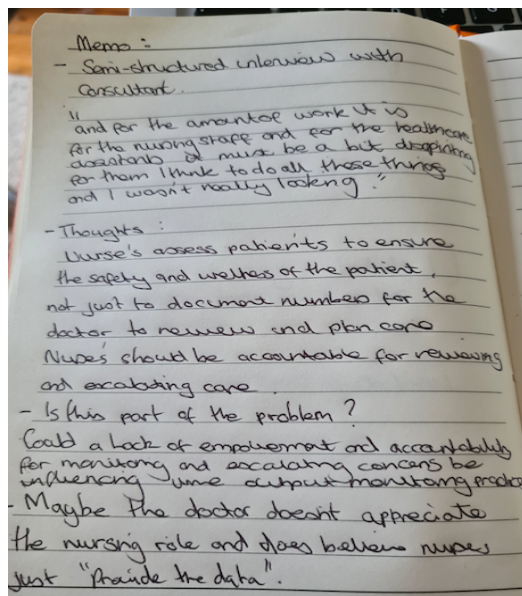 Memo :
- Semi-structured interview with
Consultant.
"and for the amount of work it is
for the nursing staff and for the healthcare
assistants it must be a bit disapointing
for them I think to do all these things
and I wasn't really looking."
- Thoughts :
Nurse's assess patients to ensure
the safety and wellness of the patient,
not just to document numbers for the
doctor to review and plan care
Nurse's should be accountable for reviewing
and escalating care.
- Is this part of the problem?
Could a lack of empowerment and accountability
for monitoring and escalating concerns be
influencing urine output monitoring practice
- Maybe the doctor doesn't appreciate
the nursing role and does believe nurses
just "Provide the data".